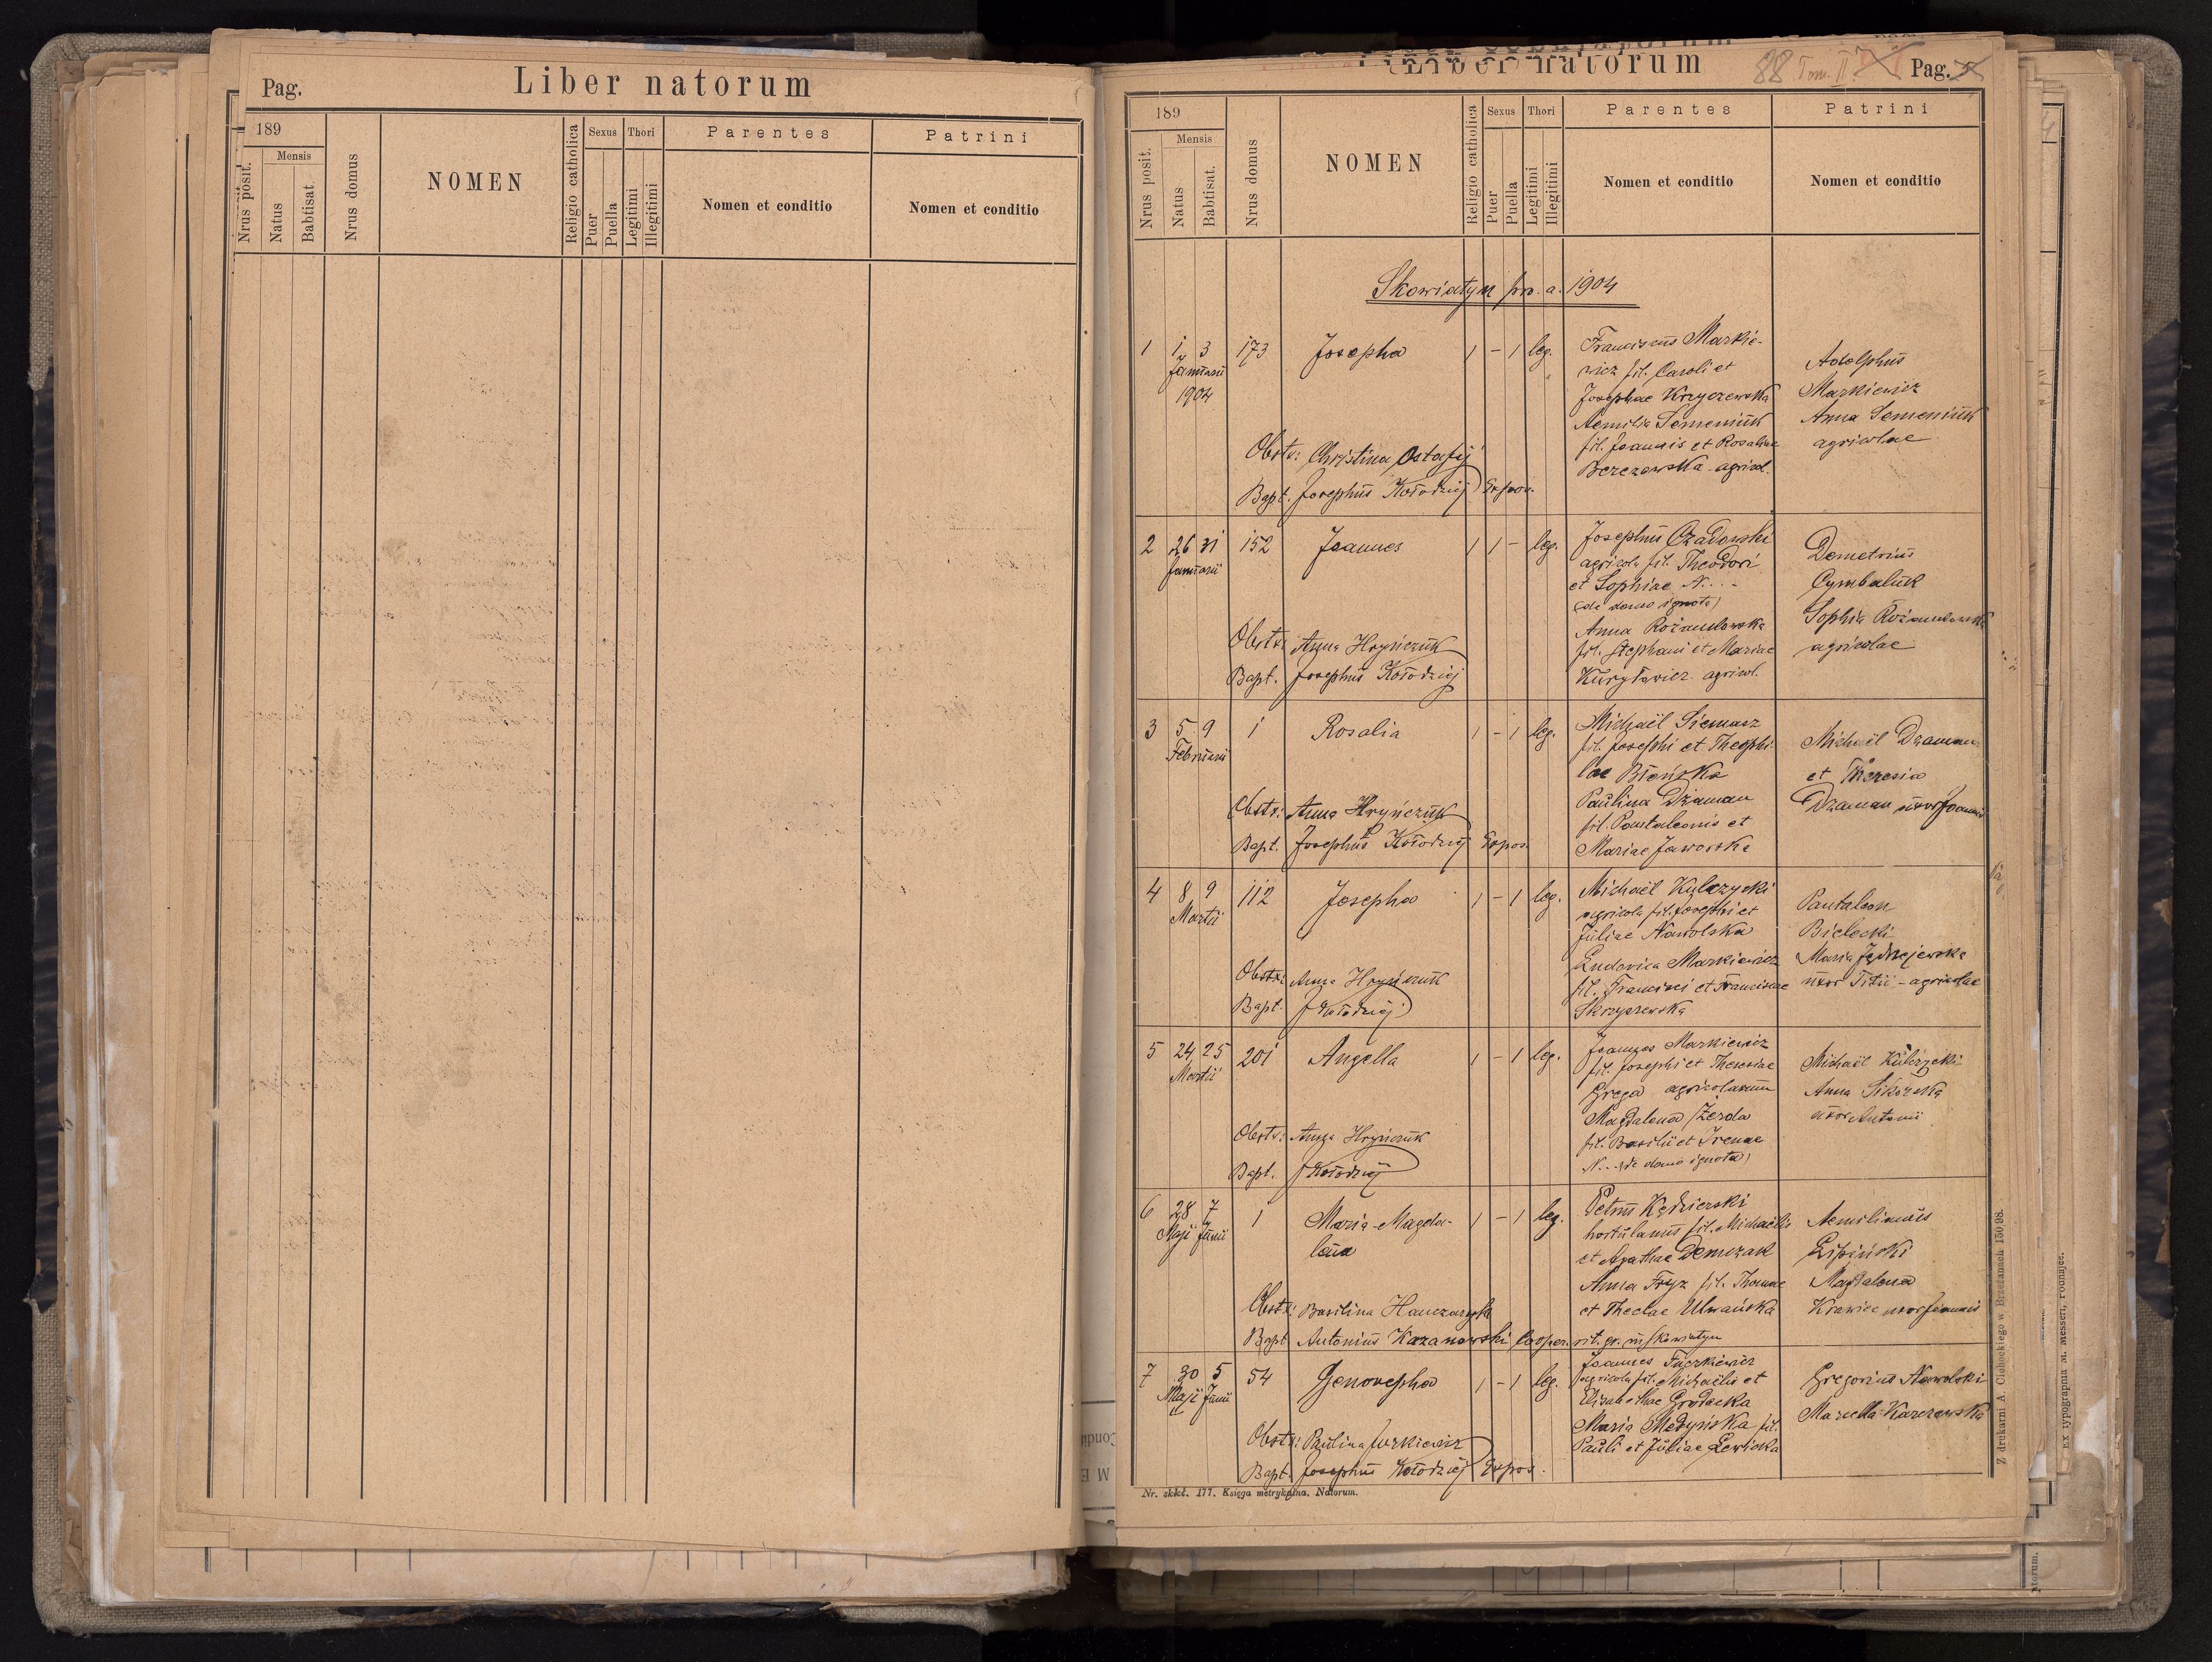 Pag.
Liber natorum
189
Mensis
Nrus posit.
Natus
Babtisat.
Nrus domus
NOMEN
Religio catholica
Sexus
Puer
Puella
Thori
Legitimi
Illegitimi
Parentes
Nomen et conditio
Patrini
Nomen et conditio
Liber natorum
88 Tom. II.
Pag.
189
Mensis
Nrus posit.
Natus
Babtisat.
Nrus domus
NOMEN
Religio catholica
Sexus
Puer
Puella
Thori
Legitimi
Illegitimi
Parentes
Nomen et conditio
Patrini
Nomen et conditio
Skowiatyn pro a. 1904
1 1 3 173 Josepha 1 - 1 leg.
Januarii
1904
Franciscus Markie-
wicz fil. Caroli et
Josephae Kryczewska
Aemilia Semeniuk
fil. Joannis et Rosaliae
Berezowska - agricol.
Adolphus
Markiewicz
Anna Semeniuk
agricolae
Obstr: Christina Ostafij
Bapt. Josephus Kołodziej Expos.
2 26 31 152 Joannes 1 1 - leg.
Januarii
Josephus Czadowski
agricola fil. Theodori
et Sophiae N...
(de domo ignota)
Anna Rożandowska
fil. Stephani et Mariae
Kuryłowicz agricol.
Demetrius
Cymbaluk
Sophia Rożandowska
agricolae
Obstr: Anna Hryńczuk
Bapt. Josephus Kołodziej
3 5 9 1 Rosalia 1 - 1 leg.
Februarii
Michaël Siemasz
fil. Josephi et Theophi-
lae Błońska
Paulina Dżaman
fil. Pantaleonis et
Mariae Jaworska
Michaël Dżaman
et Theresia
Dżaman uxor Joannis
Obstr: Anna Hryńczuk
Bapt. Josephus Kołodziej Expos.
4 8 9 112 Josepha 1 - 1 leg.
Martii
Michaël Kulczycki
agricola fil. Josephi et
Juliae Nawolska
Ludovica Markiewicz
fil. Francisci et Franciscae
Skrzyszewska
Pantaleon
Bielecki
Maria Jędrzejewska
uxor Titii - agricolae
Obstr: Anna Hryńczuk
Bapt. J Kołodziej
5 24 25 201 Angella 1 - 1 leg.
Martii
Joannes Markiewicz
fil. Josephi et Theresiae
Grega agricolarum
Magdalena Żerda
fil. Basilii et Irenae
N... (de domo ignota)
Michaël Kulczycki
Anna Sikorska
uxor Antonii
Obstr: Anna Hryńczuk
Bapt. J Kołodziej
6 28 7 1 Maria-Magda-
Maji Junii lena 1 - 1 leg.
Petrus Kędzierski
hortulanus fil. Michaëlis
et Agathae Demczak
Anna Fryz fil. Thomae
et Theclae Ulwańska
Aemilianus
Lipiński
Magdalena
Krawiec uxor Joannis
Obstr: Basilina Hanczaryk
Bapt. Antonius Kazanowski Cooper. rit. gr. in Skowiatyn
7 30 5 54 Genovepha 1 - 1 leg.
Maji Junii
Joannes Turkiewicz
agricola fil. Michaëlis et
Elisabethae Grodecka
Maria Medyńska fil.
Pauli et Juliae Lewicka
Gregorius Nawolski
Marcella Karczewska
Obstr: Paulina Jurkiewicz
Bapt. Josephus Kołodziej Expos.
Nr. skkł. 177. Księga metrykalna. Natorum.
Z drukarni A. Cichockiego w Brzeżanach 150/98.
Ex typographia M. Messeri, Podhajce.